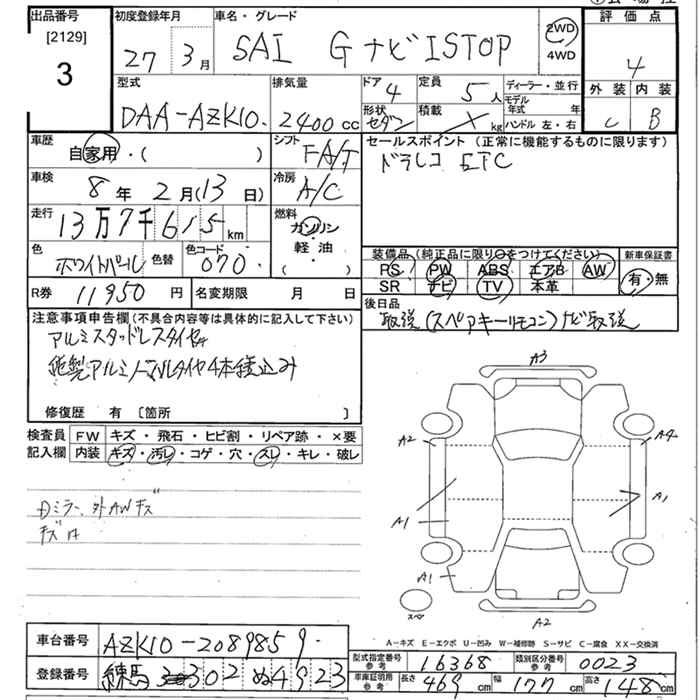 出品番号
[2129]
3
初度登録年月
27 3月
車名・グレード
SAI G ナビ ISTOP
2WD
4WD
評価点
4
外装 内装
C B
型式
DAA-AZK10.
排気量
2400 cc
ドア 4
定員 5 人
形状 セダン
積載 kg
ディーラー・並行
モデル年式 年
ハンドル 左・右
車歴
自家用・( )
シフト
FA/T
セールスポイント(正常に機能するものに限ります)
ドラレコ ETC
車検
8年 2月(13日)
冷房
A/C
走行
13万7千615 km
燃料
ガソリン
軽油
( )
色
ホワイトパール
色替
色コード
070.
装備品(純正品に限り○をつけてください)
新車保証書
PS PW ABS エアB AW
SR ナビ TV 本革
有・無
R券 11950 円
名変期限 月 日
後日品
取送(スペアキーリモコン)ナビ取送
注意事項申告欄(不具合内容等は具体的に記入して下さい)
アルミスタッドレスタイヤ
純製アルミノーマルタイヤ4本積込み
修復歴 有 〔箇所 〕
検査員記入欄
FW キズ・飛石・ヒビ割・リペア跡・×要
内装 キズ・汚レ・コゲ・穴・スレ・キレ・破レ
Dミラー、外AWキズ
A3
A2
A4
A1
A1
A1
スペア
A2
A-キズ E-エクボ U-凹み W-補修跡 S-サビ C-腐食 XX-交換済
車台番号
AZK10-2089859.
登録番号
練馬 302 ぬ4923
型式指定番号 参考 16368
類別区分番号 参考 0023
車庫証明用 参考 長さ 469 cm 幅 177 cm 高さ 148 cm